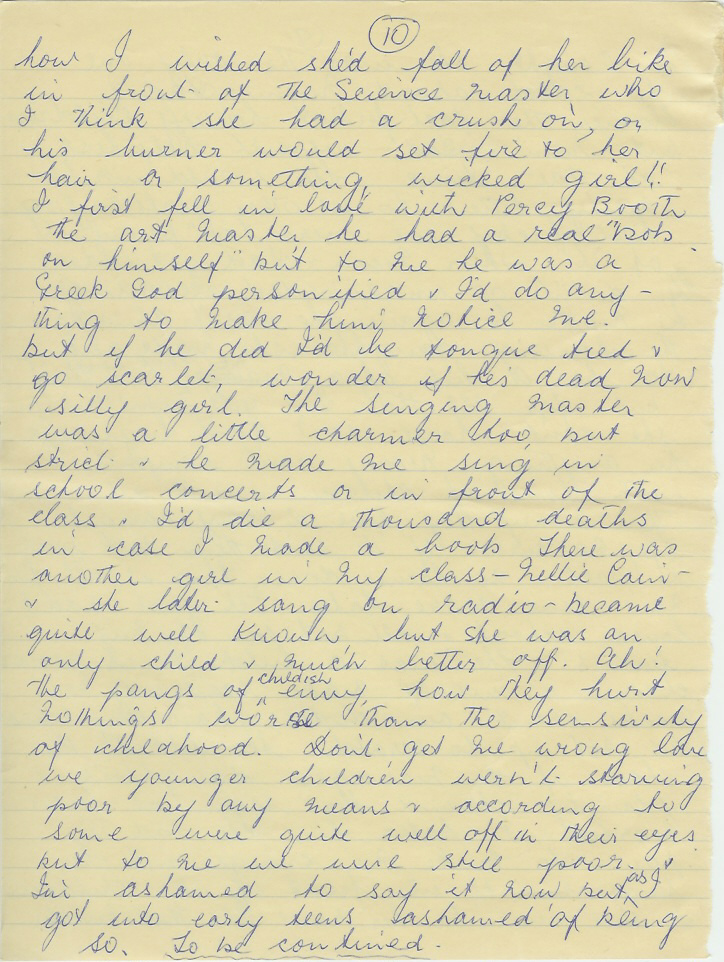 10
how I wished she'd fall of her bike
in front of the Science master who
I think she had a crush on, or
his burner would set fire to her
hair or something, wicked girl!!
I first fell in love with Percy Booth
the art master, he had a real "bob
on himself" but to me he was a
Greek God personified & I'd do any-
thing to make him notice me.
but if he did I'd be tongue tied &
go scarlet, wonder if he's dead now
silly girl. The singing master
was a little charmer too, but
strict & he made me sing in
school concerts or in front of the
class & I'd die a thousand deaths
in case I made a boob There was
another girl in my class - Nellie Cain -
& she later sang on radio - became
quite well known but she was an
only child & much better off. Ah!
the pangs of childish envy, how they hurt
nothings worse than the sensivity
of childhood. Don't get me wrong love
we younger children wern't starving
poor by any means & according to
some were quite well off in their eyes
but to me we were still poor. &
I'm ashamed to say it now but as I
got into early teens ashamed of being
so. To be continued.